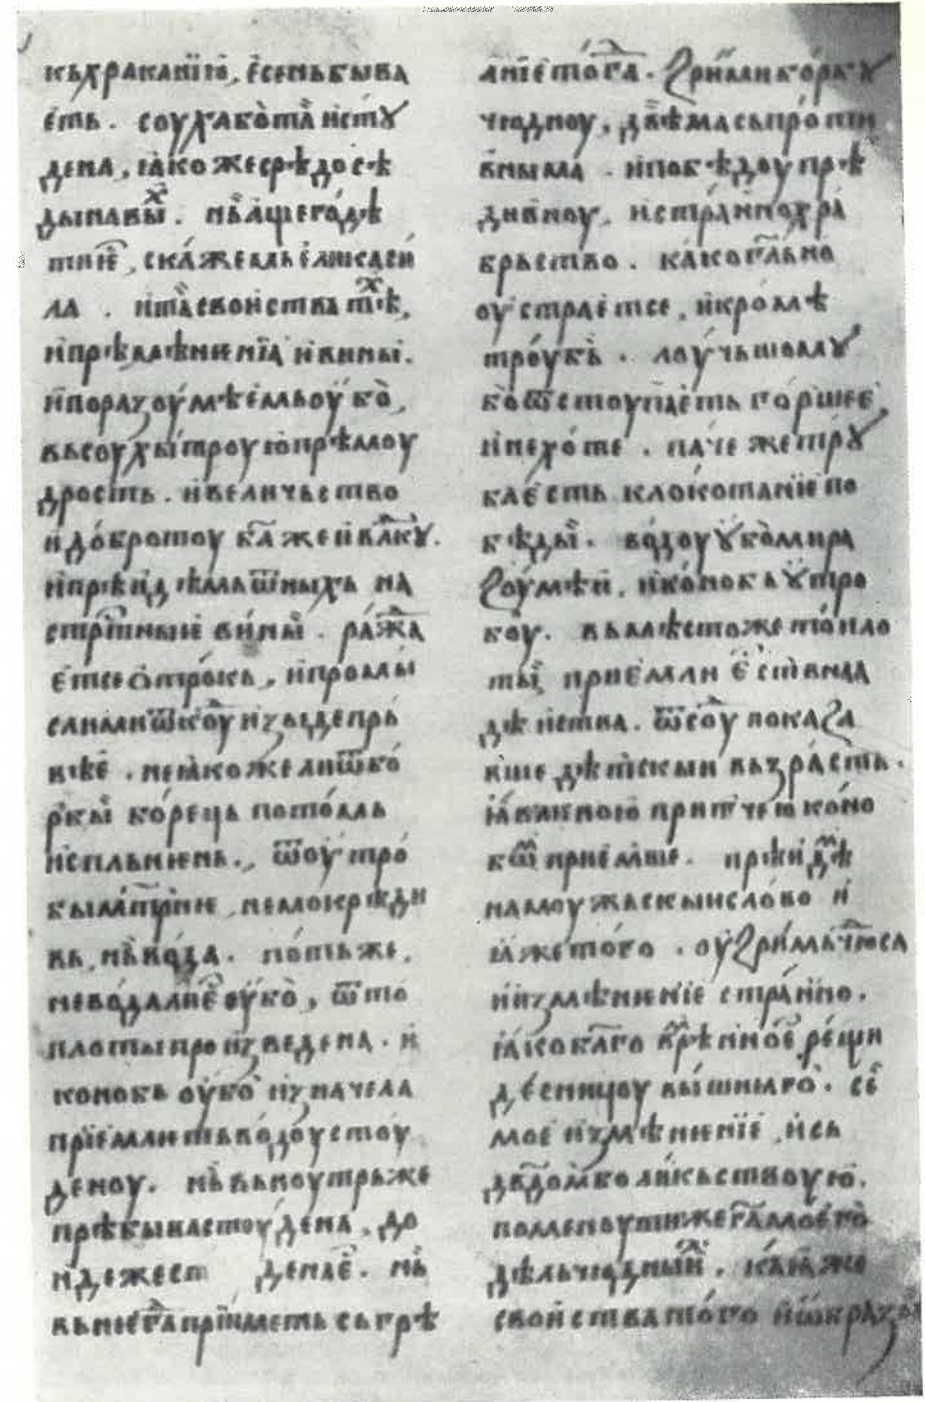 къхраканїю, ѥсень быва
еть. соухаѡтаистꙋ
дена, ꙗкоже срѣдо сѣ
дынавы. нь аще годѣ
тнѥ, скажемь ѥлисеи
ма. итасвоиства тѣх,
ипрѣмѣненїа ивины.
ипоразоумѣемь оубо,
вьсоухытроую прѣмоу
дрость. ивеличьство
идобротоу б҃а же ивлⷣкꙋ.
ипрѣидѣмь ѿныхь на
стрⷭтныи вины. ражⷣа
етсе отрокь, ипромы
слиѿкоуⷣ изыде прь
вѣе. неꙗкоже лиѿбо
ркы корень потомь
испльнень. ѿоутро
бы мт҃рнѥ, немокрѣди
вь, нь вода. поть же,
неводамнѥ оубо, ѿто
плоты произведена. и
конобь оубо изначела
прїемлить водоу стоу
деноу. нь вьноутрьже
прѣбываетстоудена, до
ндежест денаѥ. нь
вьнѥгⷣа прїиметь сьгрѣ
анїе тогⷣа. Зрими борбꙋ
чюдноу, двѣма сьпроти
вныма. ипобѣдоу прѣ
дивноу, истранно хра
брьство. како гл҃ьмо
оустраетсе, икромѣ
троубь. лоучьшомꙋ
боѿстоупаеть горшее,
инехоте. паче же трꙋ
бае сть клокотанїе по
бѣды. водоу ꙋбо мира
Зоумѣи, иконобь ꙋтро
боу. вьмѣсто же топло
ты приѥмли ѥствида
дѣиства. ѿсоуⷣ показа
вше дѣтскыи вьзрасть.
ꙗвленою притчею коно
бѡⷨ приемше. прѣидѣⷨ
намоужьскы и слово и
ꙗже того. оузримь чюса
инизмѣненїе странно.
ꙗко блг҃о врѣⷨнно ѥⷭ рещи
десницоу вышнꙗго. сї
мое измѣненїе, иса
дв҃дом боликьствоую.
помѣноутиже гл҃амоего
дѣльчюдныиⷯ. каꙗже
своиства того иѡбразоⷨ